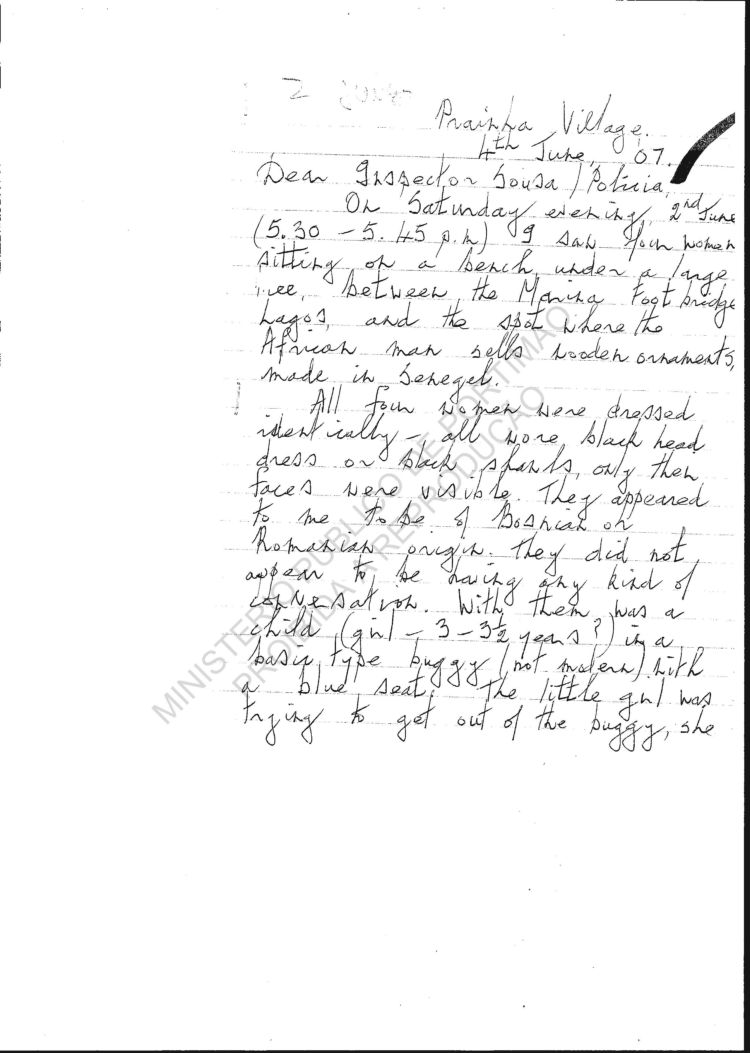 Prainha Village.
4th June, 07.
Dear Inspector Sousa / Policia,
On Saturday evening, 2nd June
(5.30 - 5.45 p.m) I saw four women
sitting on a bench, under a large
tree, between the Marina Foot bridge
Lagos, and the spot where the
African man sells wooden ornaments,
made in Senegel.
All four women were dressed
identically - all wore black head
dress or black shawls, only their
faces were visible. They appeared
to me to be of Bosnian or
Romanian origin. They did not
appear to be having any kind of
conversation. With them was a
child (girl - 3 - 3½ years?) in a
basic type buggy (not modern) with
a blue seat. The little girl was
trying to get out of the buggy, she
MINISTERIO PUBLICO DE PORTIMAO
PROIBIDA A REPRODUCAO